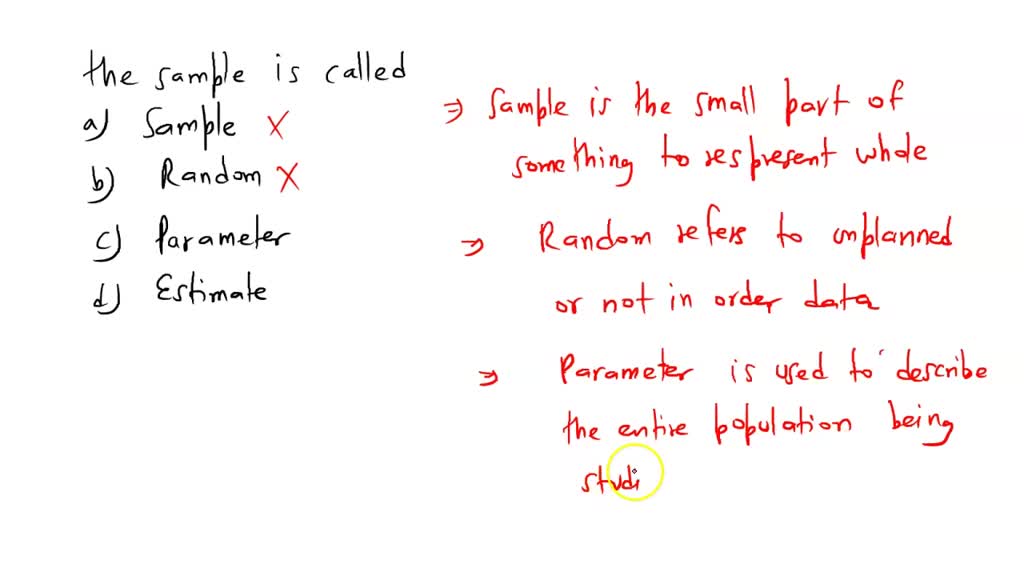 the sample is called
a) Sample X
b) Random X
c) Parameter
d) Estimate
⇒ Sample is the small part of
something to respresent whole
⇒ Random refers to unplanned
or not in order data
⇒ Parameter is used to describe
the entire population being
studi